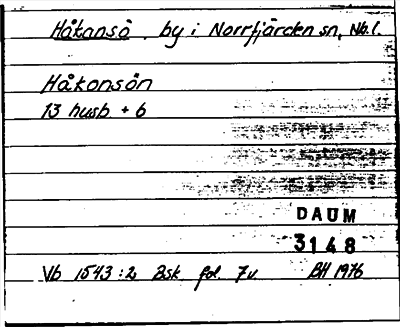 Håkansö by i Norrfjärden sn, Nb.l.
Håkonsön
13 husb + 6
DAUM
3148
Vb 1543:2 Bsk fol. 7v. BH 1976